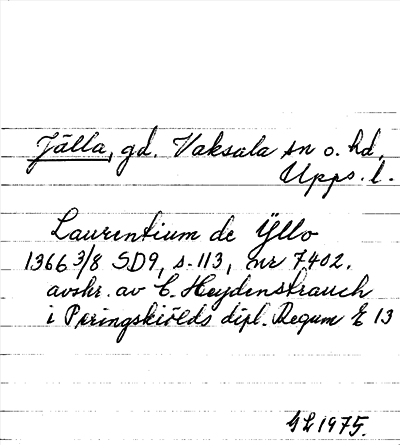 Jälla, gd. Vaksala sn o. hd.
Upps. l.
Laurentium de Ÿllo
1366 3/8 SD9, s. 113, nr 7402.
avskr. av C. Heydenstrauch
i Peringskiölds dipl. Regum E 13
GL 1975.